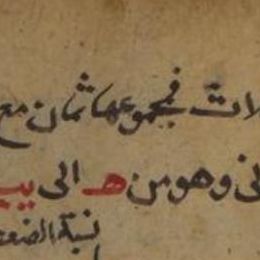 لات فمجموعها ثمان مع
نى وهو من هـ الى يب
نسبة الضعف